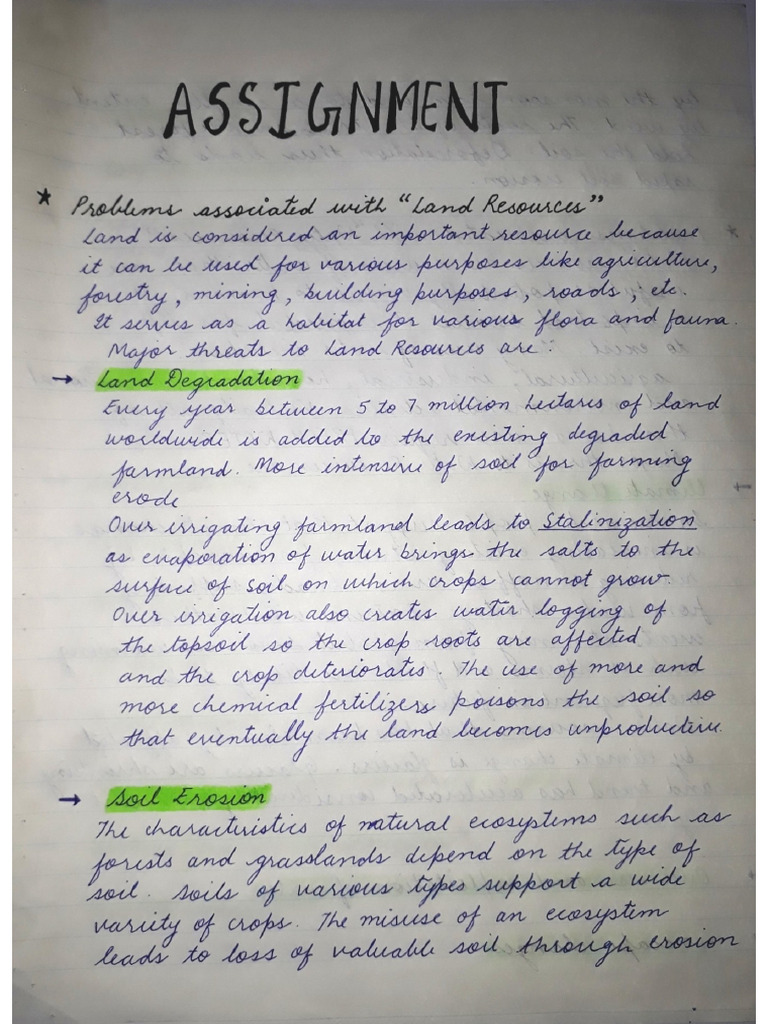 ASSIGNMENT
* Problems associated with "Land Resources"
Land is considered an important resource because
it can be used for various purposes like agriculture,
forestry, mining, building purposes, roads, etc.
It serves as a habitat for various flora and fauna.
Major threats to Land Resources are :
→ Land Degradation
Every year between 5 to 7 million hectares of land
worldwide is added to the existing degraded
farmland. More intensive of soil for farming
erode
Over irrigating farmland leads to Stalinization
as evaporation of water brings the salts to the
surface of soil on which crops cannot grow.
Over irrigation also creates water logging of
the topsoil so the crop roots are affected
and the crop deteriorates. The use of more and
more chemical fertilizers poisons the soil so
that eventually the land becomes unproductive.
→ Soil Erosion
The characteristics of natural ecosystems such as
forests and grasslands depend on the type of
soil. Soils of various types support a wide
variety of crops. The misuse of an ecosystem
leads to loss of valuable soil through erosion